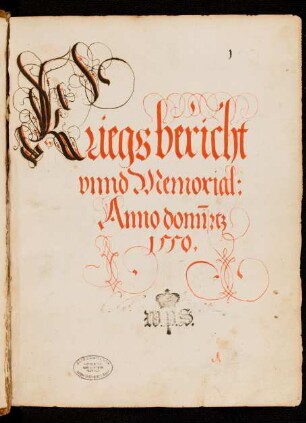 Kriegsbericht
vnnd Memorial:
Anno domī rc
1550.
W.P.S.